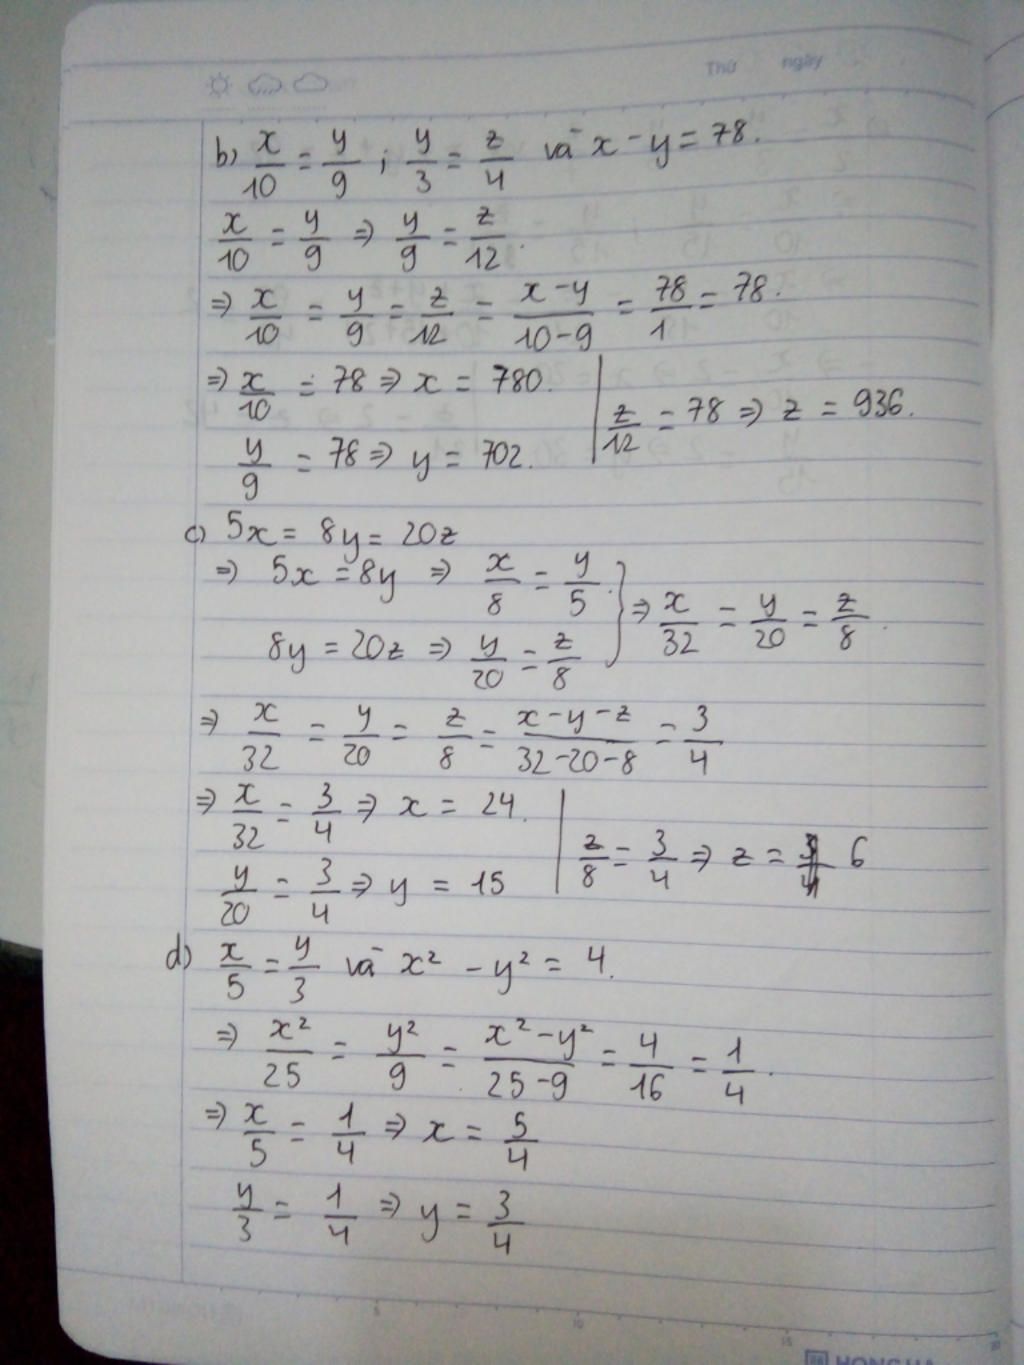 Thứ ngày
b) x/10 = y/9 ; y/3 = z/4 và x - y = 78.
x/10 = y/9 ⇒ y/9 = z/12.
⇒ x/10 = y/9 = z/12 = x-y/10-9 = 78/1 = 78.
⇒ x/10 = 78 ⇒ x = 780.
z/12 = 78 ⇒ z = 936.
y/9 = 78 ⇒ y = 702.
c) 5x = 8y = 20z
⇒ 5x = 8y ⇒ x/8 = y/5.
8y = 20z ⇒ y/20 = z/8 } ⇒ x/32 = y/20 = z/8.
⇒ x/32 = y/20 = z/8 = x-y-z/32-20-8 = 3/4
⇒ x/32 = 3/4 ⇒ x = 24.
z/8 = 3/4 ⇒ z = 6
y/20 = 3/4 ⇒ y = 15
d) x/5 = y/3 và x² - y² = 4.
⇒ x²/25 = y²/9 = x²-y²/25-9 = 4/16 = 1/4.
⇒ x/5 = 1/4 ⇒ x = 5/4
y/3 = 1/4 ⇒ y = 3/4
5 10 15 20
HONG HA